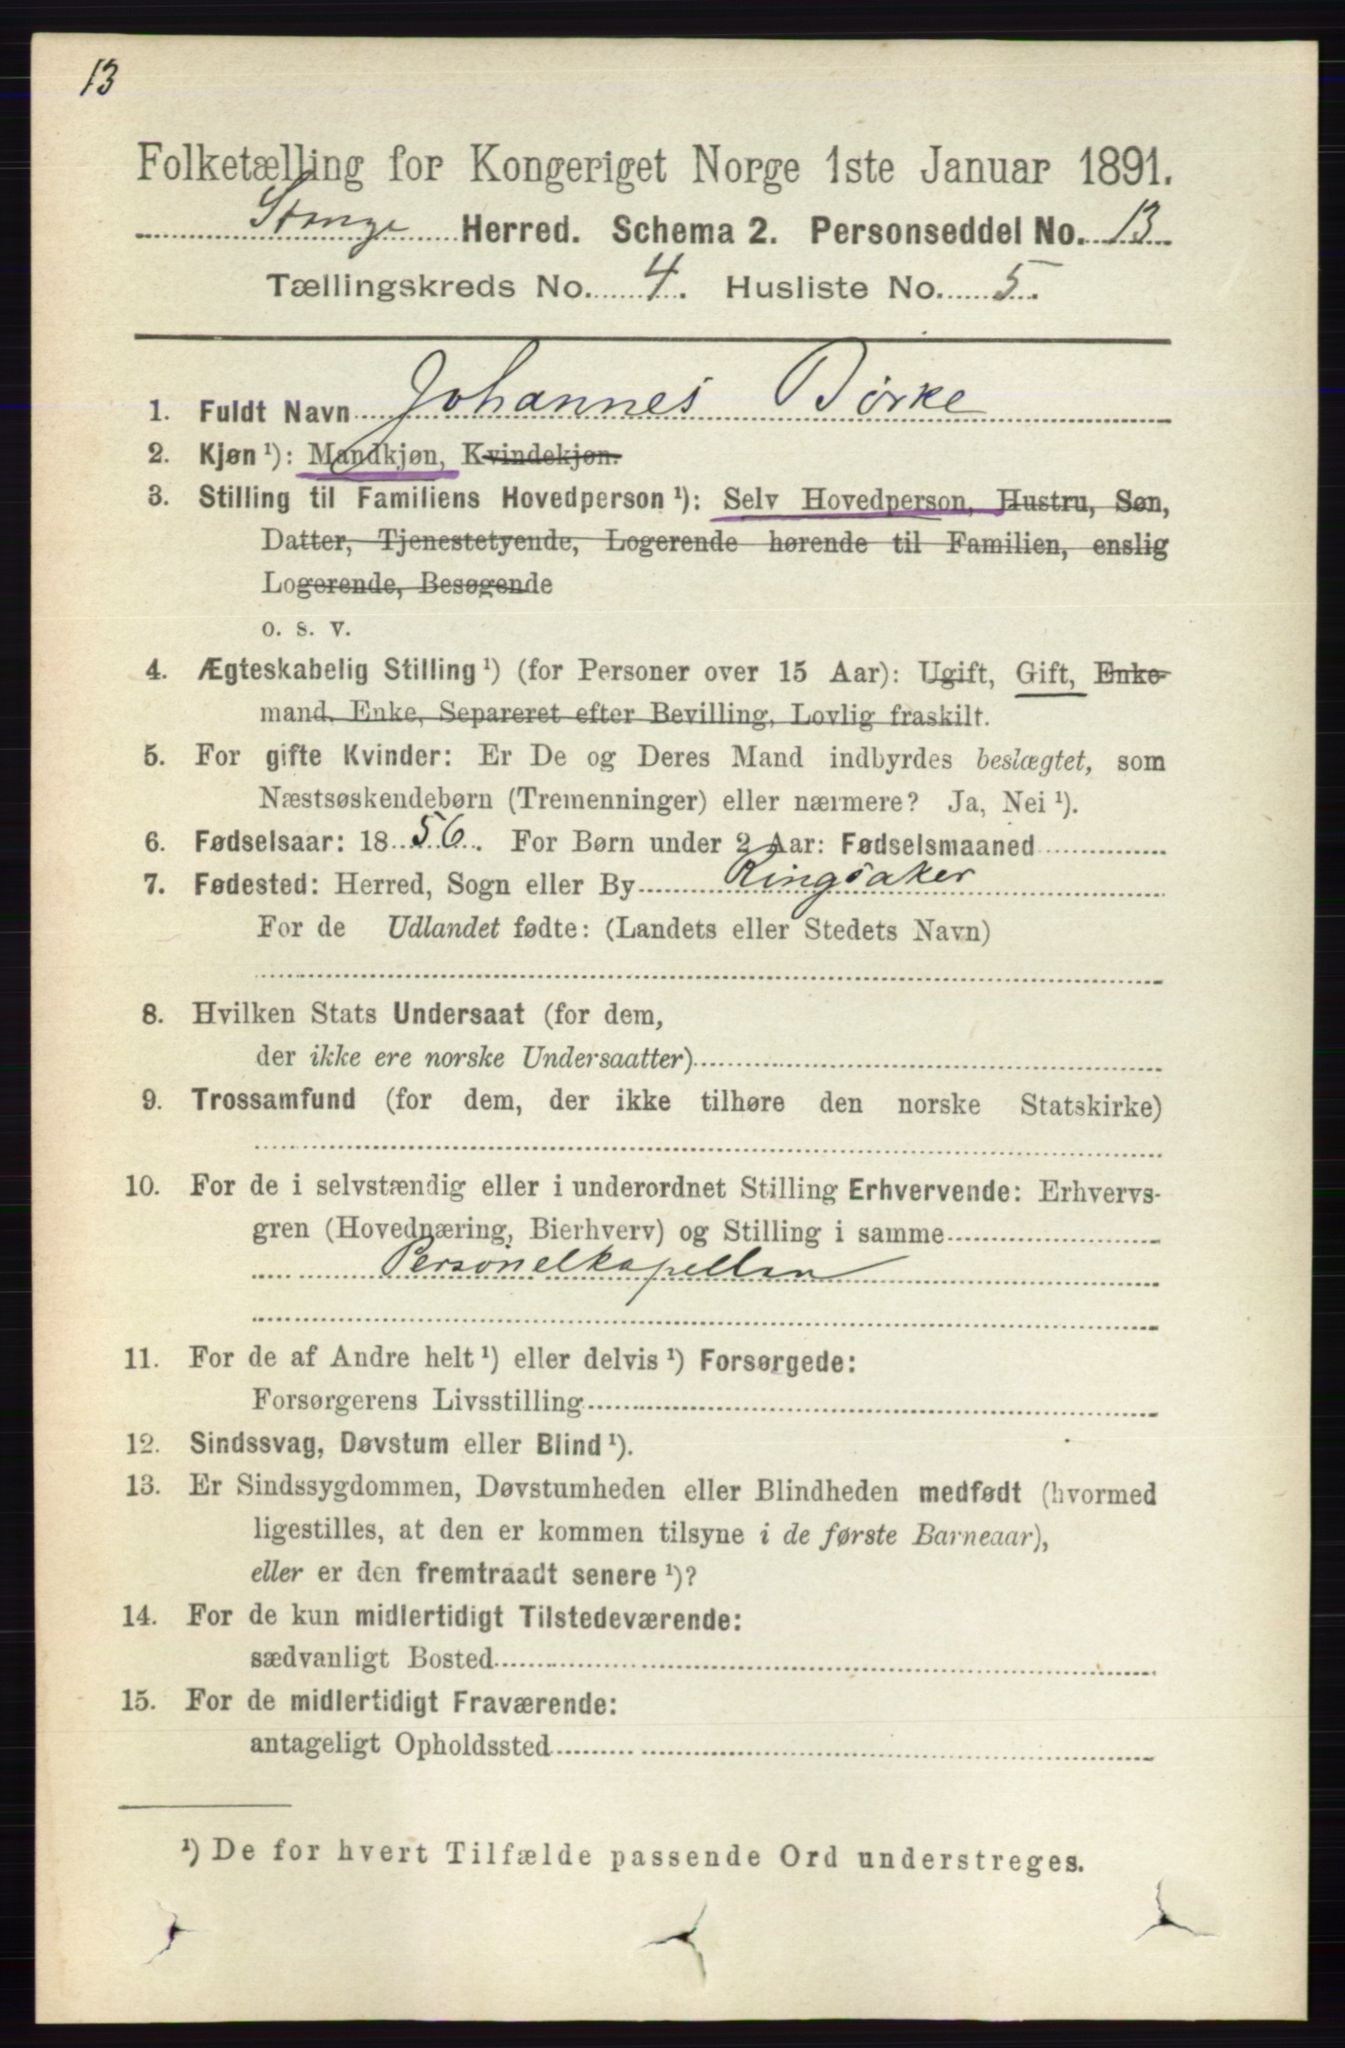 13
Folketælling for Kongeriget Norge 1ste Januar 1891.
Stange Herred. Schema 2. Personseddel No. 13
Tællingskreds No. 4. Husliste No. 5.
1. Fuldt Navn Johannes Børke
2. Kjøn ¹): Mandkjøn, Kvindekjøn.
3. Stilling til Familiens Hovedperson ¹): Selv Hovedperson, Hustru, Søn,
Datter, Tjenestetyende, Logerende hørende til Familien, enslig
Logerende, Besøgende
o. s. v.
4. Ægteskabelig Stilling ¹) (for Personer over 15 Aar): Ugift, Gift, Enke-
mand, Enke, Separeret efter Bevilling, Lovlig fraskilt.
5. For gifte Kvinder: Er De og Deres Mand indbyrdes beslægtet, som
Næstsøskendebørn (Tremenninger) eller nærmere? Ja, Nei ¹).
6. Fødselsaar: 1856. For Børn under 2 Aar: Fødselsmaaned
7. Fødested: Herred, Sogn eller By Ringsaker
For de Udlandet fødte: (Landets eller Stedets Navn)
8. Hvilken Stats Undersaat (for dem,
der ikke ere norske Undersaatter)
9. Trossamfund (for dem, der ikke tilhøre den norske Statskirke)
10. For de i selvstændig eller i underordnet Stilling Erhvervende: Erhvervs-
gren (Hovednæring, Bierhverv) og Stilling i samme
Personelkapellan
11. For de af Andre helt ¹) eller delvis ¹) Forsørgede:
Forsørgerens Livsstilling
12. Sindssvag, Døvstum eller Blind ¹).
13. Er Sindssygdommen, Døvstumheden eller Blindheden medfødt (hvormed
ligestilles, at den er kommen tilsyne i de første Barneaar),
eller er den fremtraadt senere ¹)?
14. For de kun midlertidigt Tilstedeværende:
sædvanligt Bosted
15. For de midlertidigt Fraværende:
antageligt Opholdssted
¹) De for hvert Tilfælde passende Ord understreges.